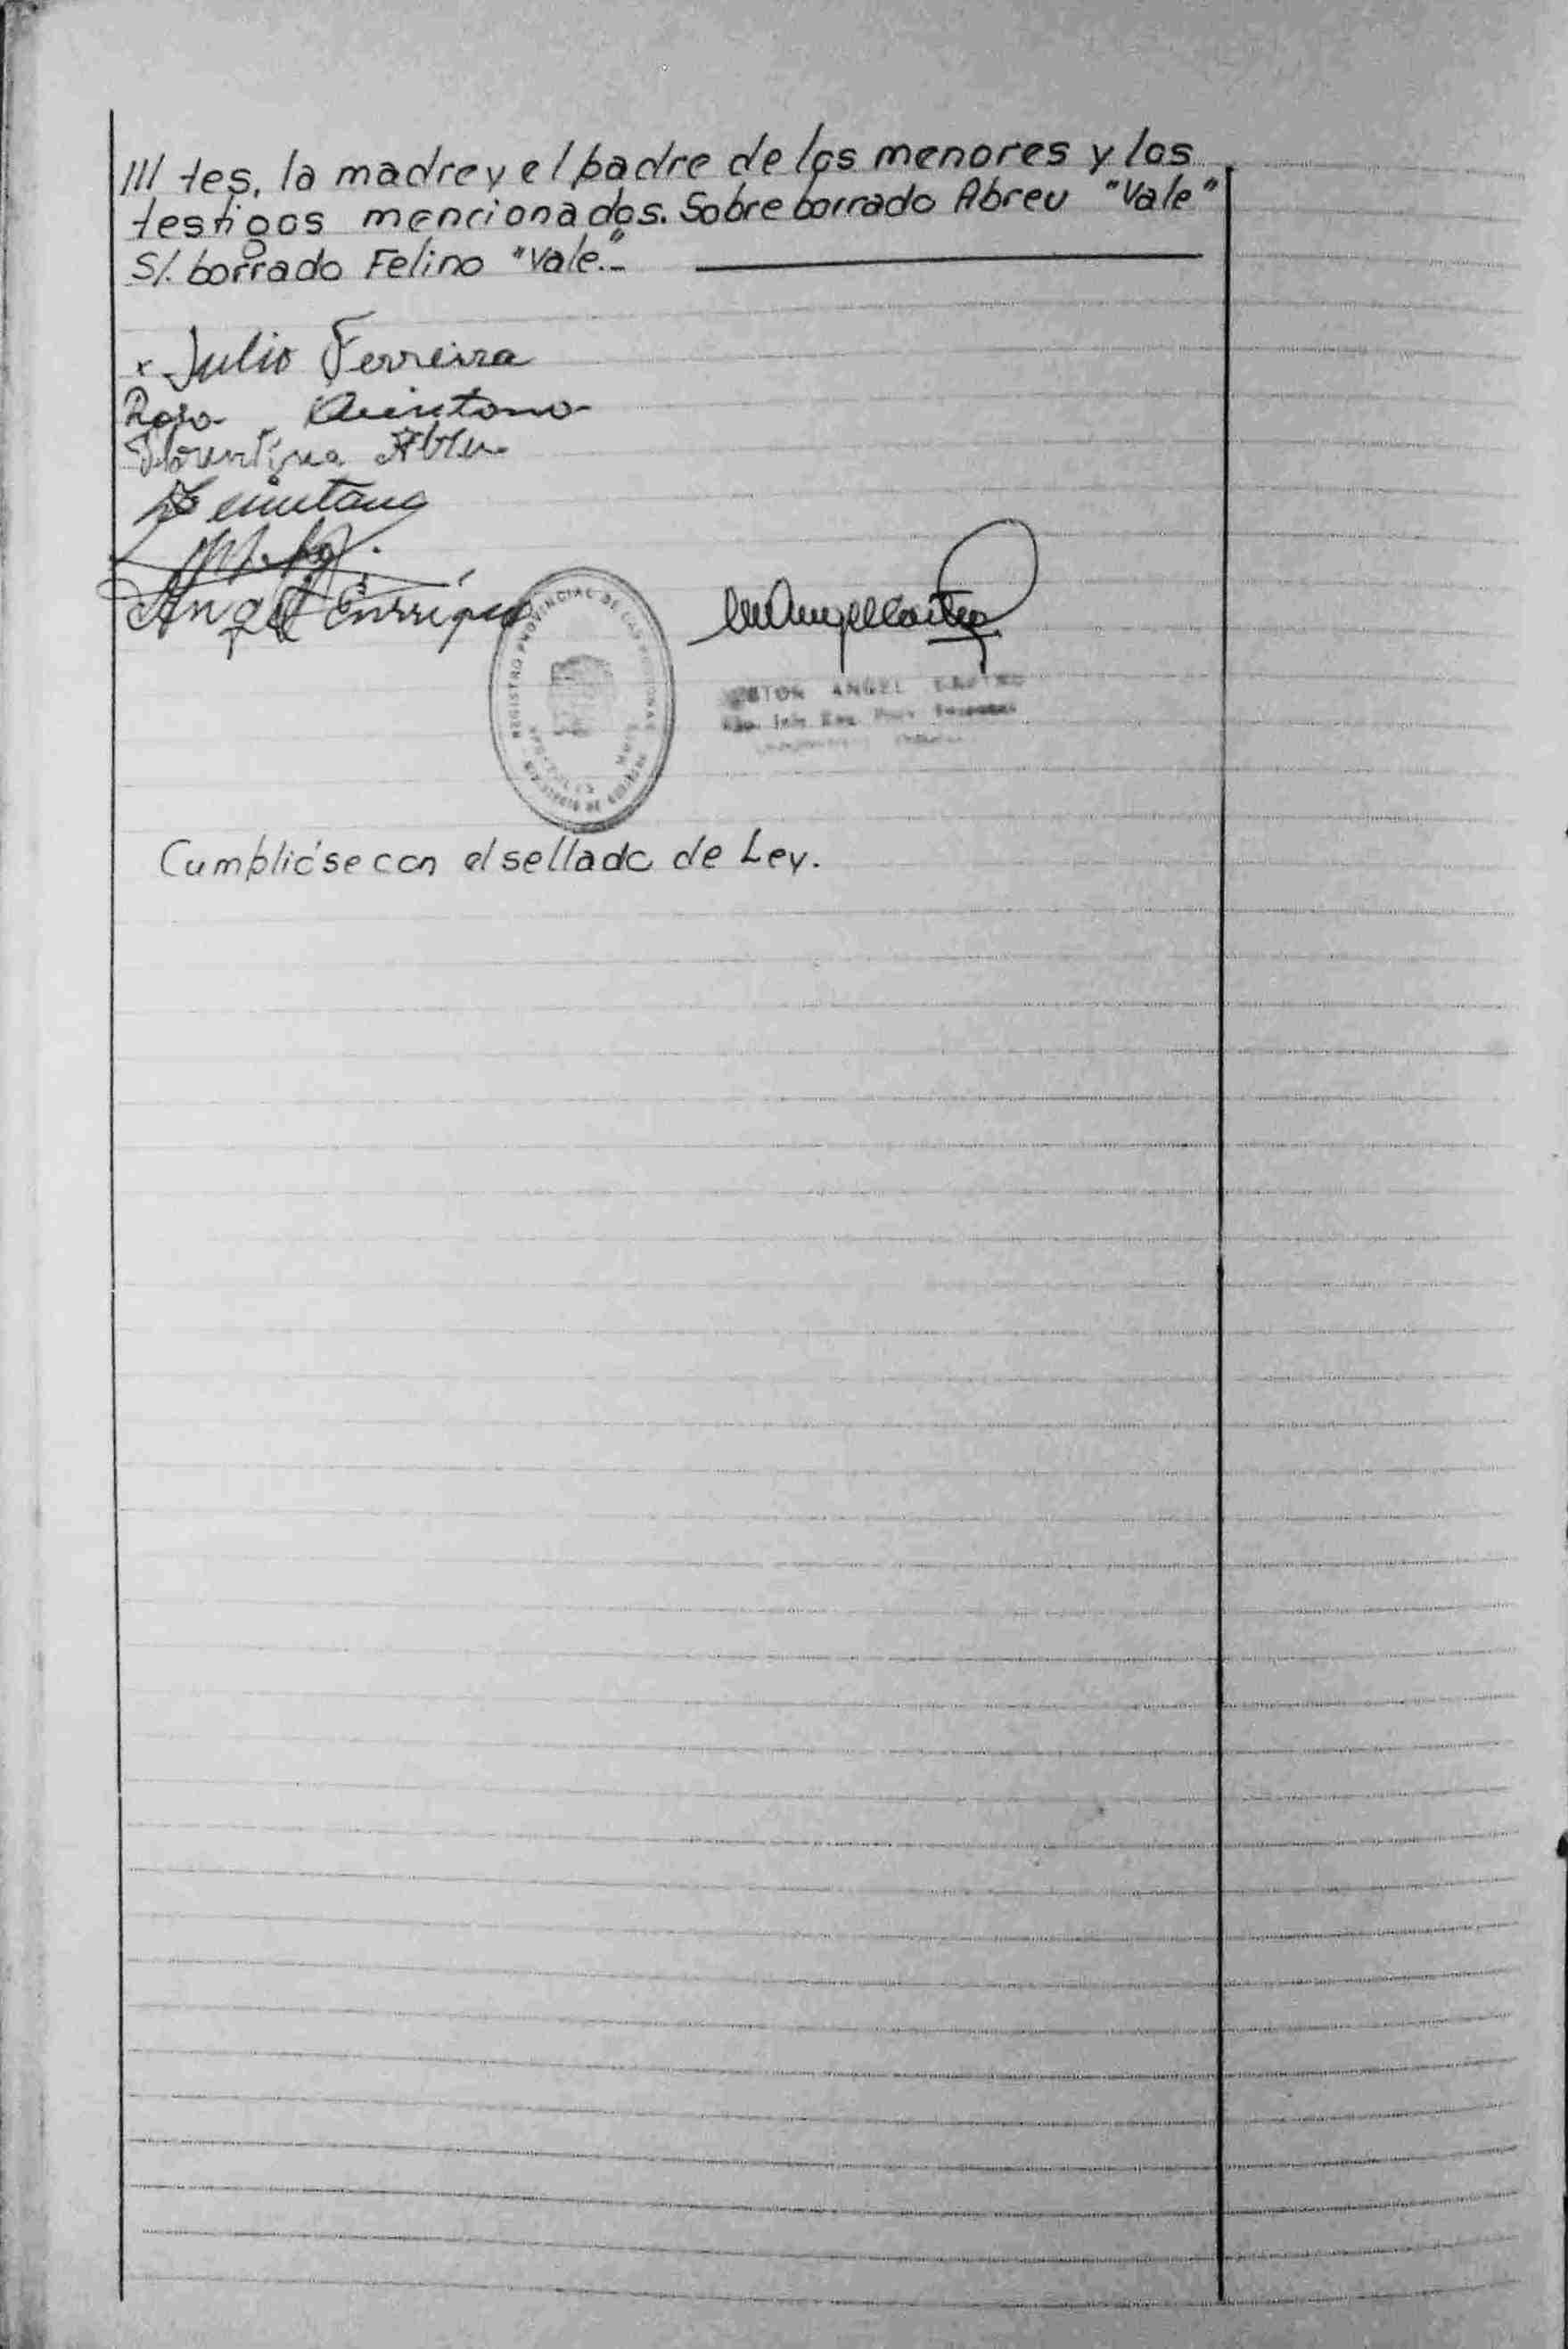 /// tes, la madre y el padre de los menores y los
testigos mencionados. Sobre borrado Abreu "Vale"
S/. borrado Felino "Vale".-
x Julio Ferreira
Rosa Quintana
Florentina Abreu
Quintana
Angel Enrique
REGISTRO PROVINCIAL DE LAS PERSONAS
ANGEL CASTRO
Cumplióse con el sellado de Ley.